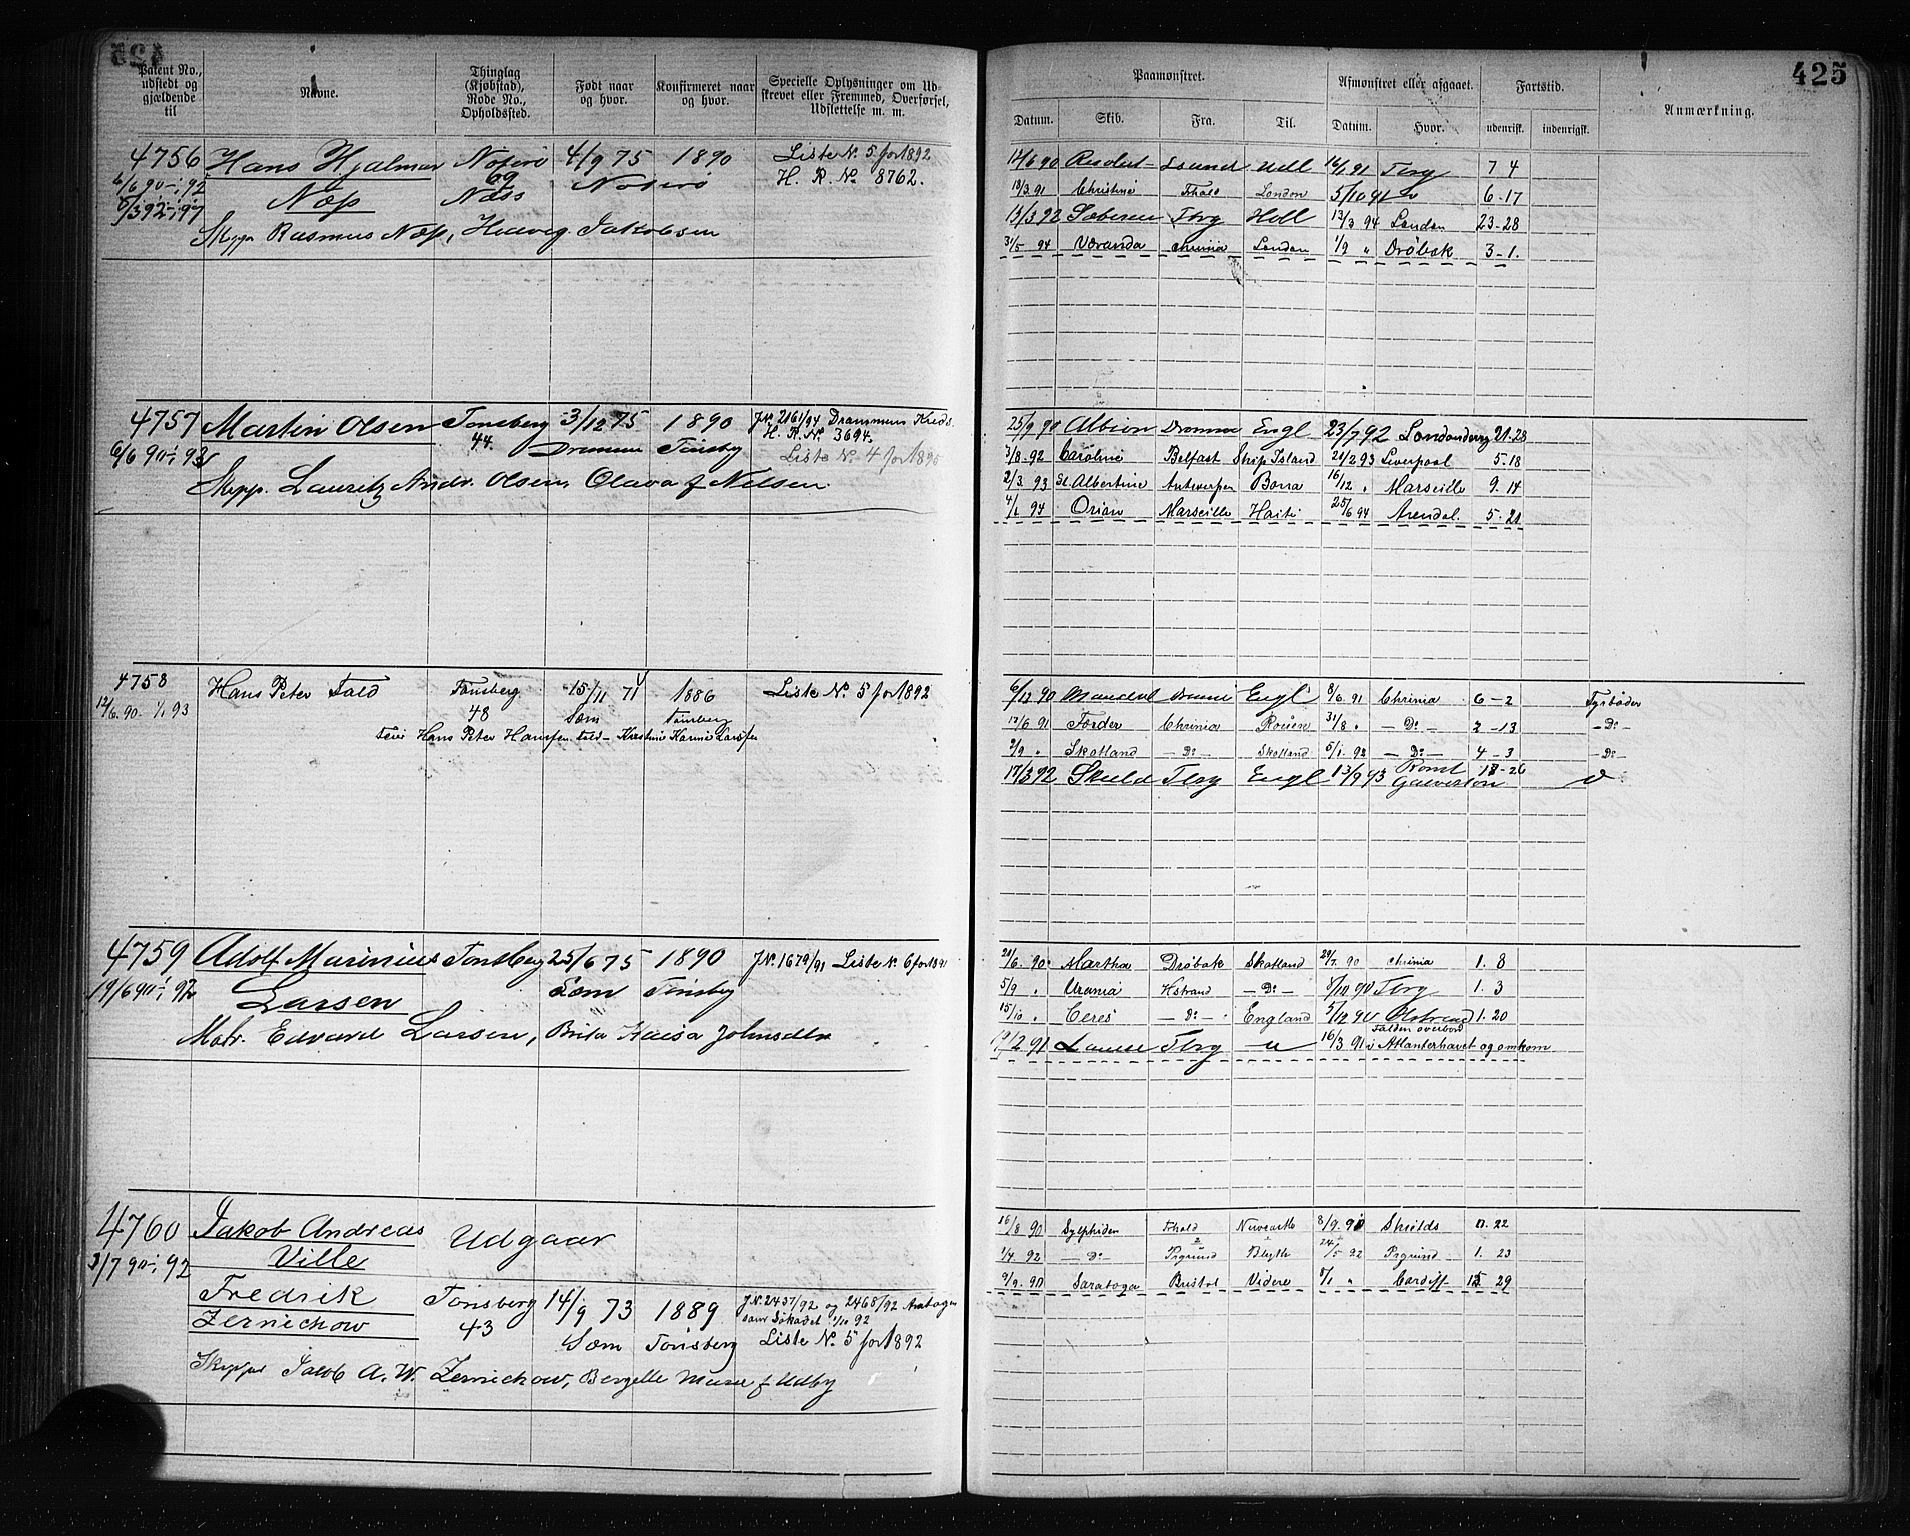 425
Patent No., udstedt og gjældende til
Navne.
Thinglag (Kjøbstad), Rode No., Opholdssted.
Født naar og hvor.
Konfirmeret naar og hvor.
Specielle Oplysninger om Udskrevet eller Fremmed, Overførsel, Udslettelse m. m.
Paamønstret.
Afmønstret eller afgaaet.
Fartstid.
Anmærkning.
Datum. Skib. Fra. Til. Datum. Hvor. udenrigsk. indenrigsk.
4756 Hans Hjalmar Nøterø 4/9 75 1890 Liste N. 5 for 1892
6/6 90 - 1/1 92 Næss 69 Nøterø H. R. No 8762.
Næss
Skipper Rasmus Næss, Hedvig Jakobsen
12/6 90 Lsund Udl 16/1 91 Tbrg 7 4
18/3 91 Christine Fhald London 5/10 91 6-17
13/3 92 Tbrg Holl 13/3 94 London 23-28
31/5 94 Veranda Chrinia London 1/9 " Drøbak 3-1.
4757 Martin Olsen Tønsberg 3/12 75 1890 J.N. 2161/94 Drammens Kreds.
44. Drammen Tønsbg H. R. No 3694.
6/6 90 - 1/1 93 Liste No 4 for 1895
Skipp. Lauritz Andr. Olsen, Olava f Nilsen.
25/9 90 Albion Dramm Engl 23/7 92 Londonderry 21-28
3/8 92 Caroline Belfast Ship Island 21/2 93 Liverpool 5-18
2/3 93 St. Albertine Antwerpen 16/12 " Marseille 9.14
4/1 94 Orion Marseille Haiti 25/6 94 Arendal. 5-21
4758 Hans Peter Fold Tønsberg 15/11 71 1886 Liste N. 5 for 1892
12/6 90 - 1/1 93 48 Sem Tønsberg
Hans Peter Hanssen Fold - Kirstine Karine Larssen
6/12 90 Engl 8/6 91 Chrinia 6-2 Fyrbøder
12/6 91 Færder Chrinia Rouen 31/8 " - Do - 2-13 - Do -
2/9 " Skotland - Do - Skotland 5/1 92 - Do - 4-3 - Do
17/3 92 Skuld Tbrg Engl 13/9 93 Rømt Galveston 17-26
4759 Adolf Marinius Tønsberg 25/6 75 1890 J.N. 1679/91 Liste N. 6 for 1891
19/6 90 - 1/1 92 Larsen Sem Tønsbg
Matr. Edvard Larsen, Brita Kaisa Johnsdtr
20/6 90 Martha Drøbak Skotland 29/7 90 Chrinia 1. 8
5/9 " Urania Hstrand - Do - 8/10 90 Tbrg 1. 3
15/10 " Ceres - Do - England 5/12 90 Hstrand 1. 20
Tbrg 16/3 91 falden overbord i Atlanterhavet og omkom
4760 Jakob Andreas Udgaar
3/7 90 - 1/1 92 Ville
Fredrik Tønsberg 14/9 73 1889 J.N. 2457/92 og 2468/92
Zernichow 43 Sem Tønsberg Liste N. 5 for 1892
Skipper Jacob A. W. Zernichow, Bergette Marie f Udby
26/8 90 Sylphiden Fhald 8/9 90 Shields 0. 22
1/4 92 - Do - Prgrund Blyth 24/5 92 Prgrund 1. 23
9/9 90 Saratoga Bristol Videre 8/1 " Cardiff 15 29